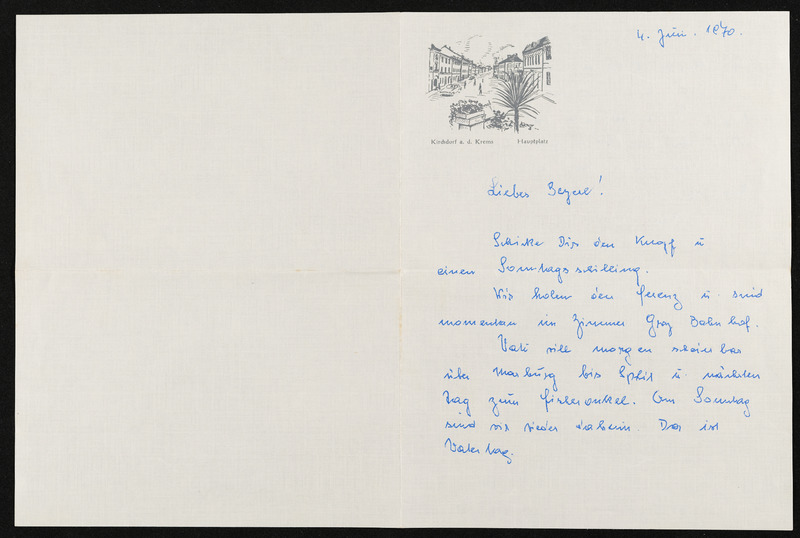 4. Juni. 1970.
Kirchdorf a. d. Krems Hauptplatz
Liebes !
Schicke Dir den Knopf u
einen Sonntagsschilling.
Wir holen den Ferenz u. sind
momentan im Zimmer Graz Bahnhof.
Vati will morgen scheinbar
über Marburg bis Split u. nächsten
Tag zum Fischeronkel. Am Sonntag
sind wir wieder daheim. Da ist
Vatertag.